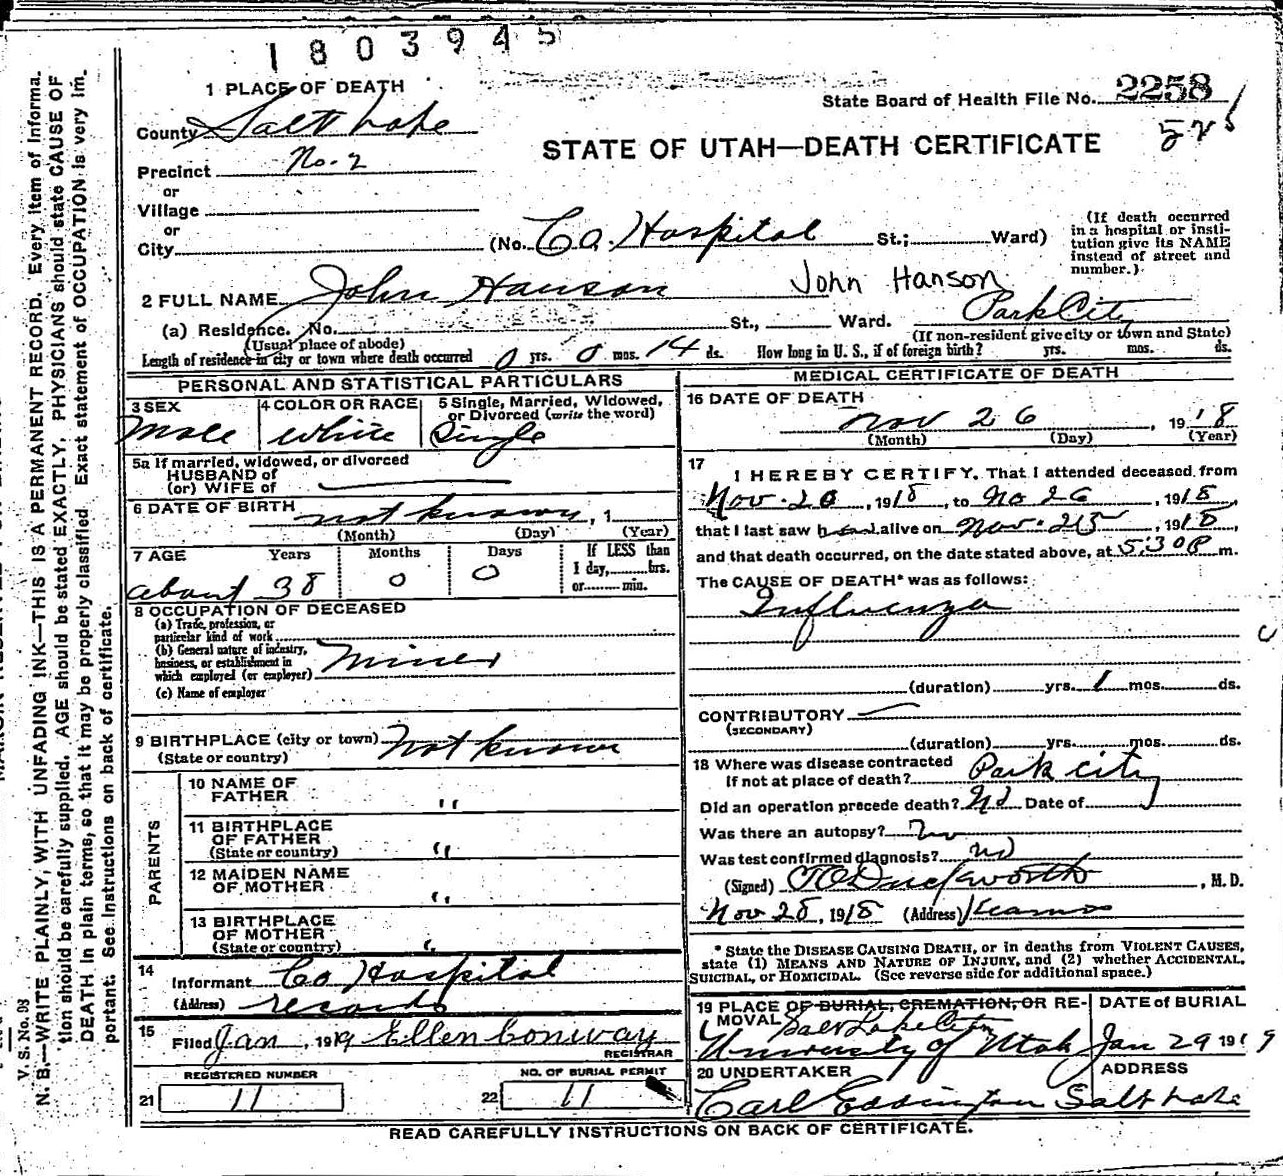 1803945
1 PLACE OF DEATH
State Board of Health File No. 2258
County Salt Lake
52
STATE OF UTAH—DEATH CERTIFICATE
Precinct No. 2
or
Village
or
City
(No. Co. Hospital St.; Ward)
(If death occurred in a hospital or insti-
tution give its NAME instead of street and number.)
2 FULL NAME John Hanson John Hanson
(a) Residence. No. St., Ward. Park City
(Usual place of abode) (If non-resident give city or town and State)
Length of residence in city or town where death occurred 0 yrs. 0 mos. 14 ds. How long in U. S., if of foreign birth? yrs. mos. ds.
PERSONAL AND STATISTICAL PARTICULARS
3 SEX 4 COLOR OR RACE 5 Single, Married, Widowed,
or Divorced (write the word)
Male White Single
5a If married, widowed, or divorced
HUSBAND of
(or) WIFE of
6 DATE OF BIRTH not known, 1
(Month) (Day) (Year)
7 AGE Years Months Days If LESS than
1 day, hrs.
or min.
about 38 0 0
8 OCCUPATION OF DECEASED
(a) Trade, profession, or
particular kind of work
(b) General nature of industry,
business, or establishment in
which employed (or employer) Miner
(c) Name of employer
9 BIRTHPLACE (city or town) Not known
(State or country)
PARENTS
10 NAME OF
FATHER "
11 BIRTHPLACE
OF FATHER
(State or country) "
12 MAIDEN NAME
OF MOTHER "
13 BIRTHPLACE
OF MOTHER
(State or country) "
14
Informant Co Hospital
(Address) records
15
Filed Jan, 1919 Ellen Conway
REGISTRAR
REGISTERED NUMBER NO. OF BURIAL PERMIT
21 11 22 11
MEDICAL CERTIFICATE OF DEATH
16 DATE OF DEATH
Nov 26, 1918
(Month) (Day) (Year)
17
I HEREBY CERTIFY, That I attended deceased from
Nov. 20, 1918, to No 26, 1918,
that I last saw h alive on Nov. 25, 1918,
and that death occurred, on the date stated above, at 5:30P m.
The CAUSE OF DEATH* was as follows:
Influenza
(duration) yrs. 1 mos. ds.
CONTRIBUTORY
(SECONDARY)
(duration) yrs. mos. ds.
18 Where was disease contracted
If not at place of death? Park City
Did an operation precede death? No Date of
Was there an autopsy? No
Was test confirmed diagnosis? No
(Signed) Duckworth, M. D.
Nov 28, 1918 (Address) Kearns
* State the DISEASE CAUSING DEATH, or in deaths from VIOLENT CAUSES,
state (1) MEANS AND NATURE OF INJURY, and (2) whether ACCIDENTAL,
SUICIDAL, or HOMICIDAL. (See reverse side for additional space.)
19 PLACE OF BURIAL, CREMATION, OR RE-
MOVAL Salt Lake City
University of Utah
DATE OF BURIAL
Jan 29 1919
20 UNDERTAKER ADDRESS
Carl Eddington Salt Lake
READ CAREFULLY INSTRUCTIONS ON BACK OF CERTIFICATE.
V. S. No. 98
N. B.—WRITE PLAINLY, WITH UNFADING INK—THIS IS A PERMANENT RECORD. Every item of informa-
tion should be carefully supplied. AGE should be stated EXACTLY. PHYSICIANS should state CAUSE OF
DEATH in plain terms, so that it may be properly classified. Exact statement of OCCUPATION is very im-
portant. See instructions on back of certificate.